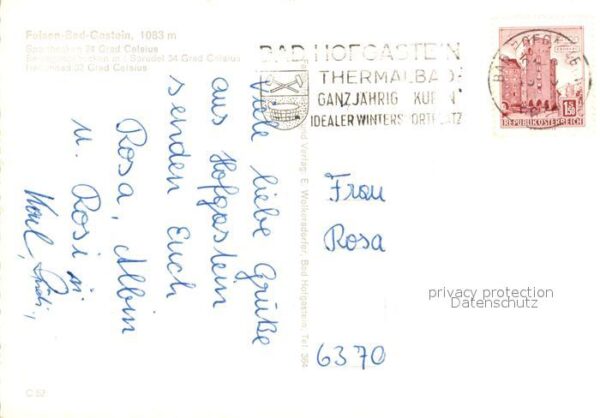 Felsen-Bad-Gastein, 1083 m
Sportbecken 24 Grad Celsius
Sprudel 34 Grad Celsius
32 Grad Celsius
BAD HOFGASTEIN
THERMALBAD
GANZJÄHRIG KUREN
IDEALER WINTERSPORTPLATZ
1.50
REPUBLIK ÖSTERREICH
Viele liebe Grüße
aus Hofgastein
senden Euch
Rosa, Albin
u. Rosi
Karl,
und Verlag: E. Wolkersdorfer, Bad Hofgastein, Tel. 364
Frau
Rosa
6370
privacy protection
Datenschutz
C 52